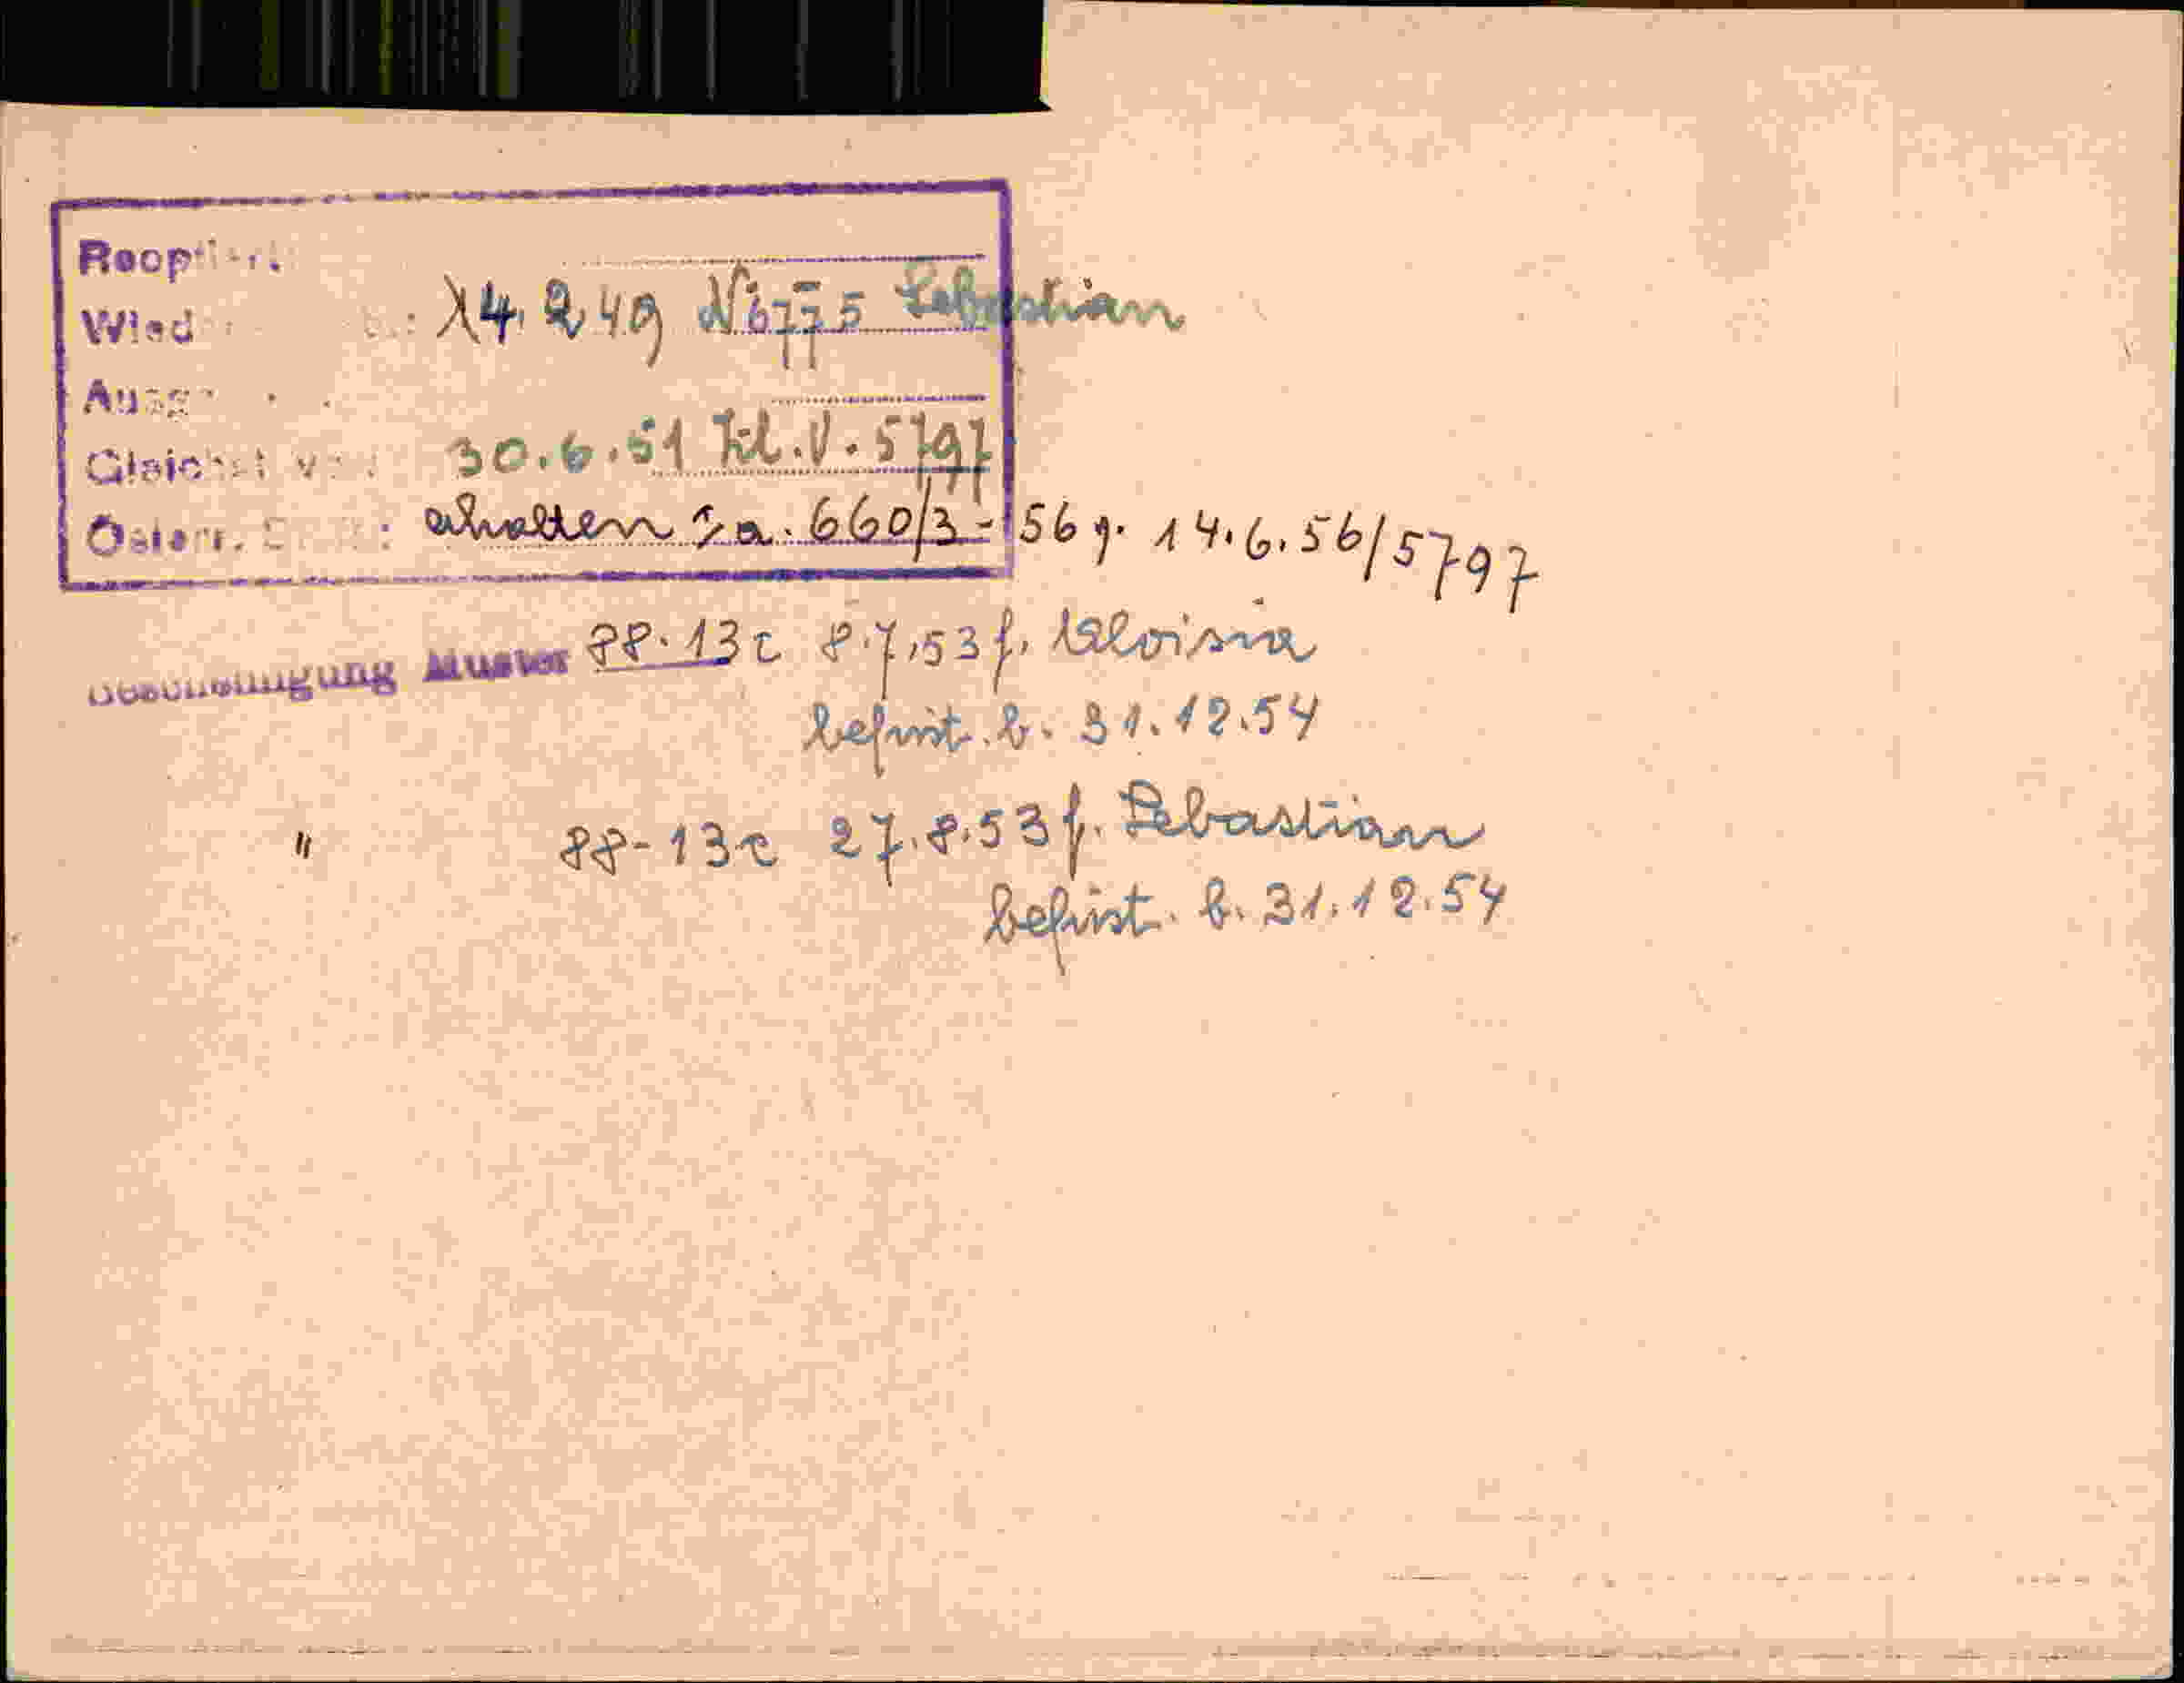 Reopt
Wied : 14.2.49 N 6775 Sebastian
Ausg
Gleich 30.6.51 Kl. V. 5797
Österr. : erhalten Za. 660/3-56 g. 14.6.56/5797
Bescheinigung Muster 88-13c 8.7.53 f. Aloisia
befrist. b. 31.12.54
" 88-13c 27.8.53 f. Sebastian
befrist. b. 31.12.54